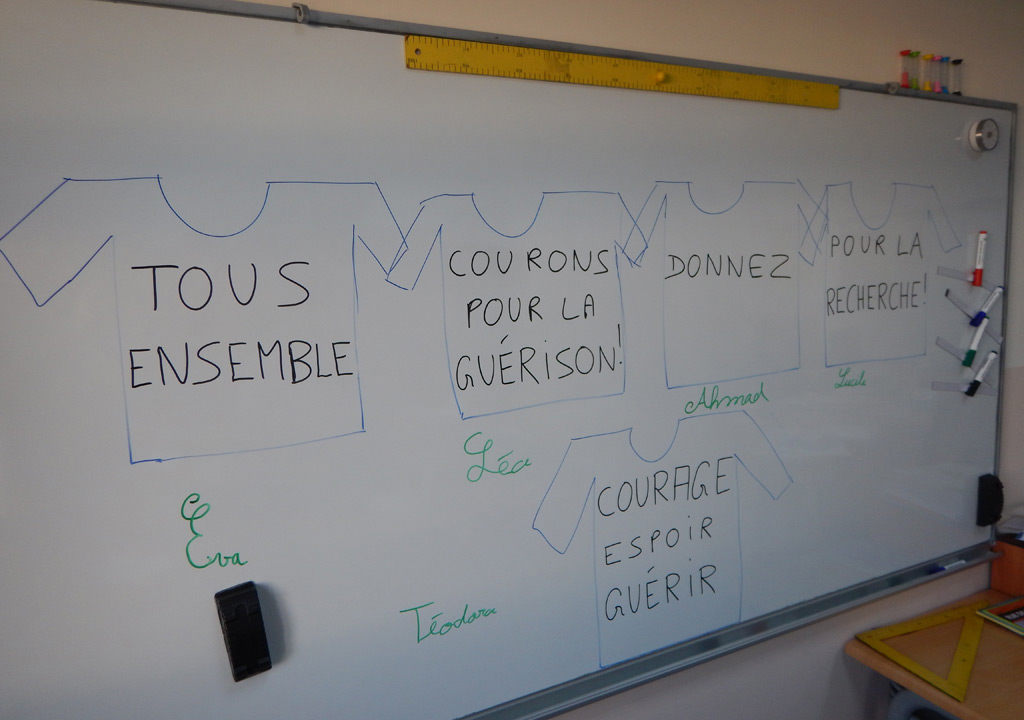 TOUS
ENSEMBLE
Eva
COURONS
POUR LA
GUÉRISON!
Léa
DONNEZ
Ahmad
POUR LA
RECHERCHE!
Lucile
COURAGE
ESPOIR
GUÉRIR
Téodora